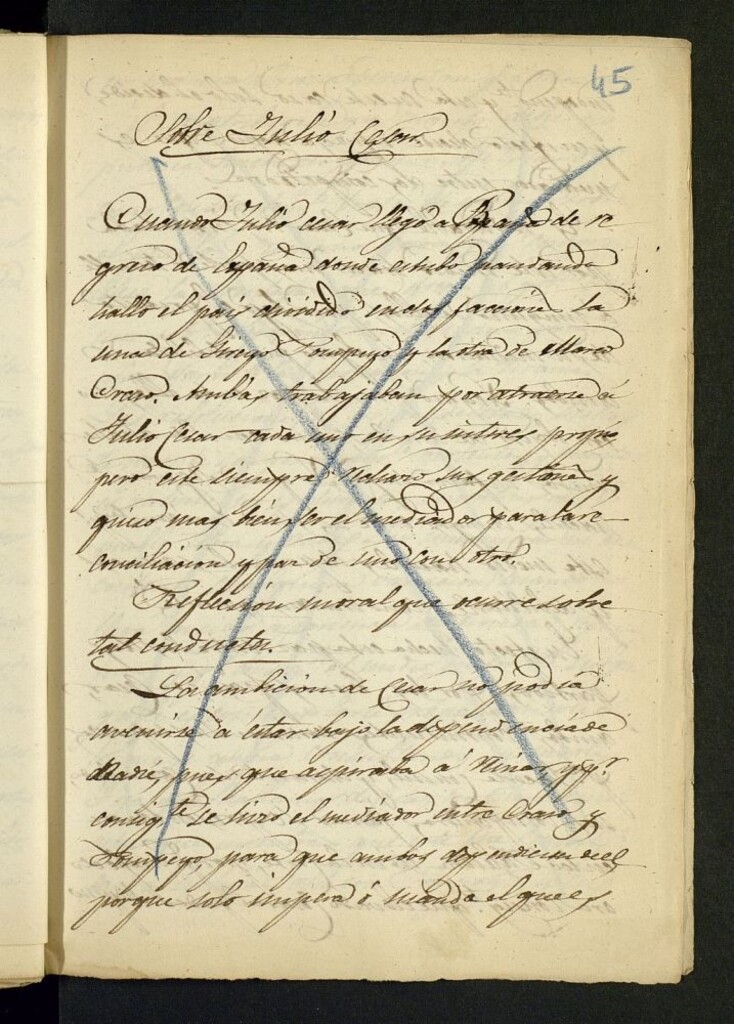 45
Sobre Julio Cesar.
Cuando Julio cesar llegó a de re
greso de España donde estubo mandando
hallo el pais dividido en dos faccione la
una de Pompeyo y la otra de Marco
Craso. Ambas trabajaban por atraerse á
Julio Cesar cada uno en su interes propio
pero este siempre sus gestione y
quiso mas bien ser el mediador para la re-
conciliacion y paz de uno con otro.
Reflecsion moral que ocurre sobre
tal conducta.
La ambicion de Cesar no podia
avenirse á estar bajo la dependencia de
Nadie, pues que aspiraba á y pr.
consigte. se hizo el mediador entre Craso y
Pompeyo, para que ambos dependiesen de el
porque solo impera ó manda el que es